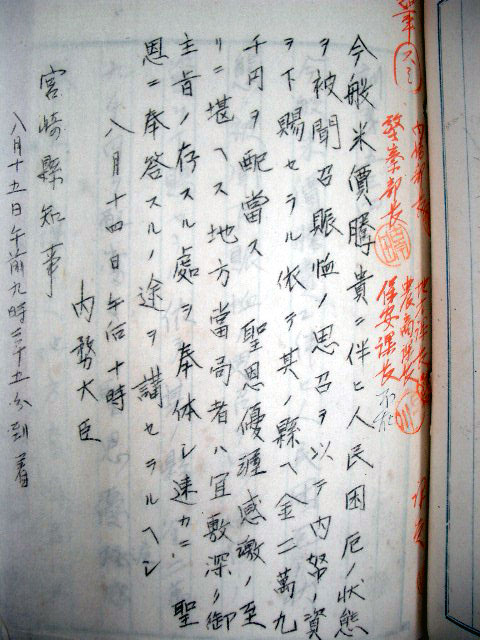 警察部長
保安課長
農商課長
今般米價騰貴ニ伴ヒ人民困厄ノ状態
ヲ被聞召賑恤ノ思召ヲ以テ内帑ノ資
ヲ下賜セラル依テ其ノ縣ヘ金二萬九
千円ヲ配當ス 聖恩優渥感激ノ至
リニ堪ヘス地方當局者ハ宜敷深ク御
主旨ノ存スル處ヲ奉体シ速カニ 聖
恩ニ奉答スルノ途ヲ講セラルヘシ
八月十四日午后十時
内務大臣
宮崎縣知事
八月十五日午前九時三十五分到着